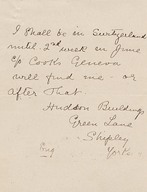 I shall be in Switzerland
until 2nd week in June
c/o Cooks Geneva
will find me - or
After That
Hudson Buildings
Green Lane
Shipley
Eng Yorks